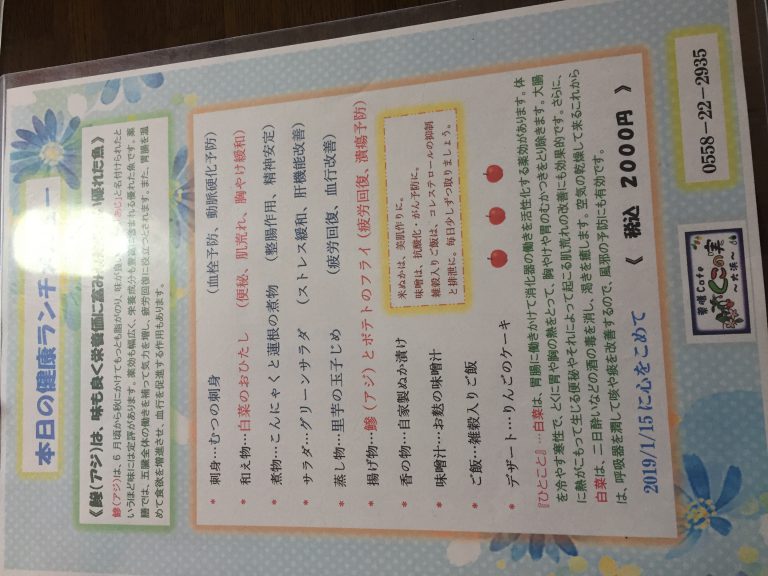 本日の健康ランチ
《鯵(アジ)は、味も良く栄養価に富み 優れた魚》
鯵(アジ)は、6月頃から秋にかけてもっとも脂がのり、味が良い 「あじ」と名付けられたと
いうほど味には定評があります。薬効も幅広く、栄養成分も豊富に含まれる優れた魚です。薬
膳では、五臓全体の働きを補って気力を増し、疲労回復に役立つとされます。また、胃腸を温
めて食欲を増進させ、血行を促進する作用もあります。
* 刺身…むつの刺身 (血栓予防、動脈硬化予防)
* 和え物…白菜のおひたし (便秘、肌荒れ、胸やけ緩和)
* 煮物…こんにゃくと蓮根の煮物 (整腸作用、精神安定)
* サラダ…グリーンサラダ (ストレス緩和、肝機能改善)
* 蒸し物…里芋の玉子じめ (疲労回復、血行改善)
* 揚げ物…鯵(アジ)とポテトのフライ(疲労回復、潰瘍予防)
* 香の物…自家製ぬか漬け
* 味噌汁…お麩の味噌汁
* ご飯…雑穀入りご飯
* デザート…りんごのケーキ
米ぬかは、美肌作りに。
味噌は、抗酸化・がん予防に。
雑穀入りご飯は、コレステロールの抑制
と排泄に。毎日少しずつ取りましょう。
『ひとこと』…白菜は、胃腸に働きかけて消化器の働きを活性化する薬効があります。体
を冷やす寒性で、とくに胃や胸の熱をとって、胸やけや胃のむかつきをとり除きます。大腸
に熱がこもって生じる便秘やそれによって起こる肌荒れの改善にも効果的です。さらに、
白菜は、二日酔いなどの酒の毒を消し、渇きを癒します。空気の乾燥して来るこれから
は、呼吸器を潤して咳や痰を改善するので、風邪の予防にも有効です。
2019/1/15 に心をこめて 《 税込 2000円 》
薬膳Cafe
くこの実
～大浜～
0558-22-2935